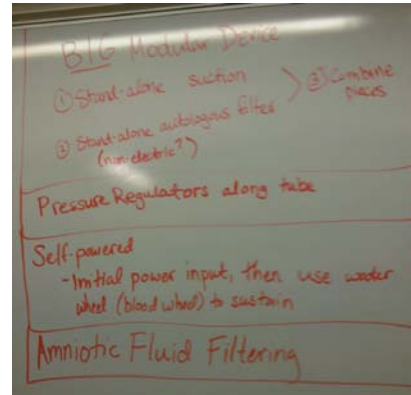 BIG Modular Device
① Stand-alone suction
② Stand-alone autologous filter
(non-electric?)
③ Combine
pieces
Pressure Regulators along tube
Self-powered
- Initial power input, then use water
wheel (blood wheel) to sustain
Amniotic Fluid Filtering